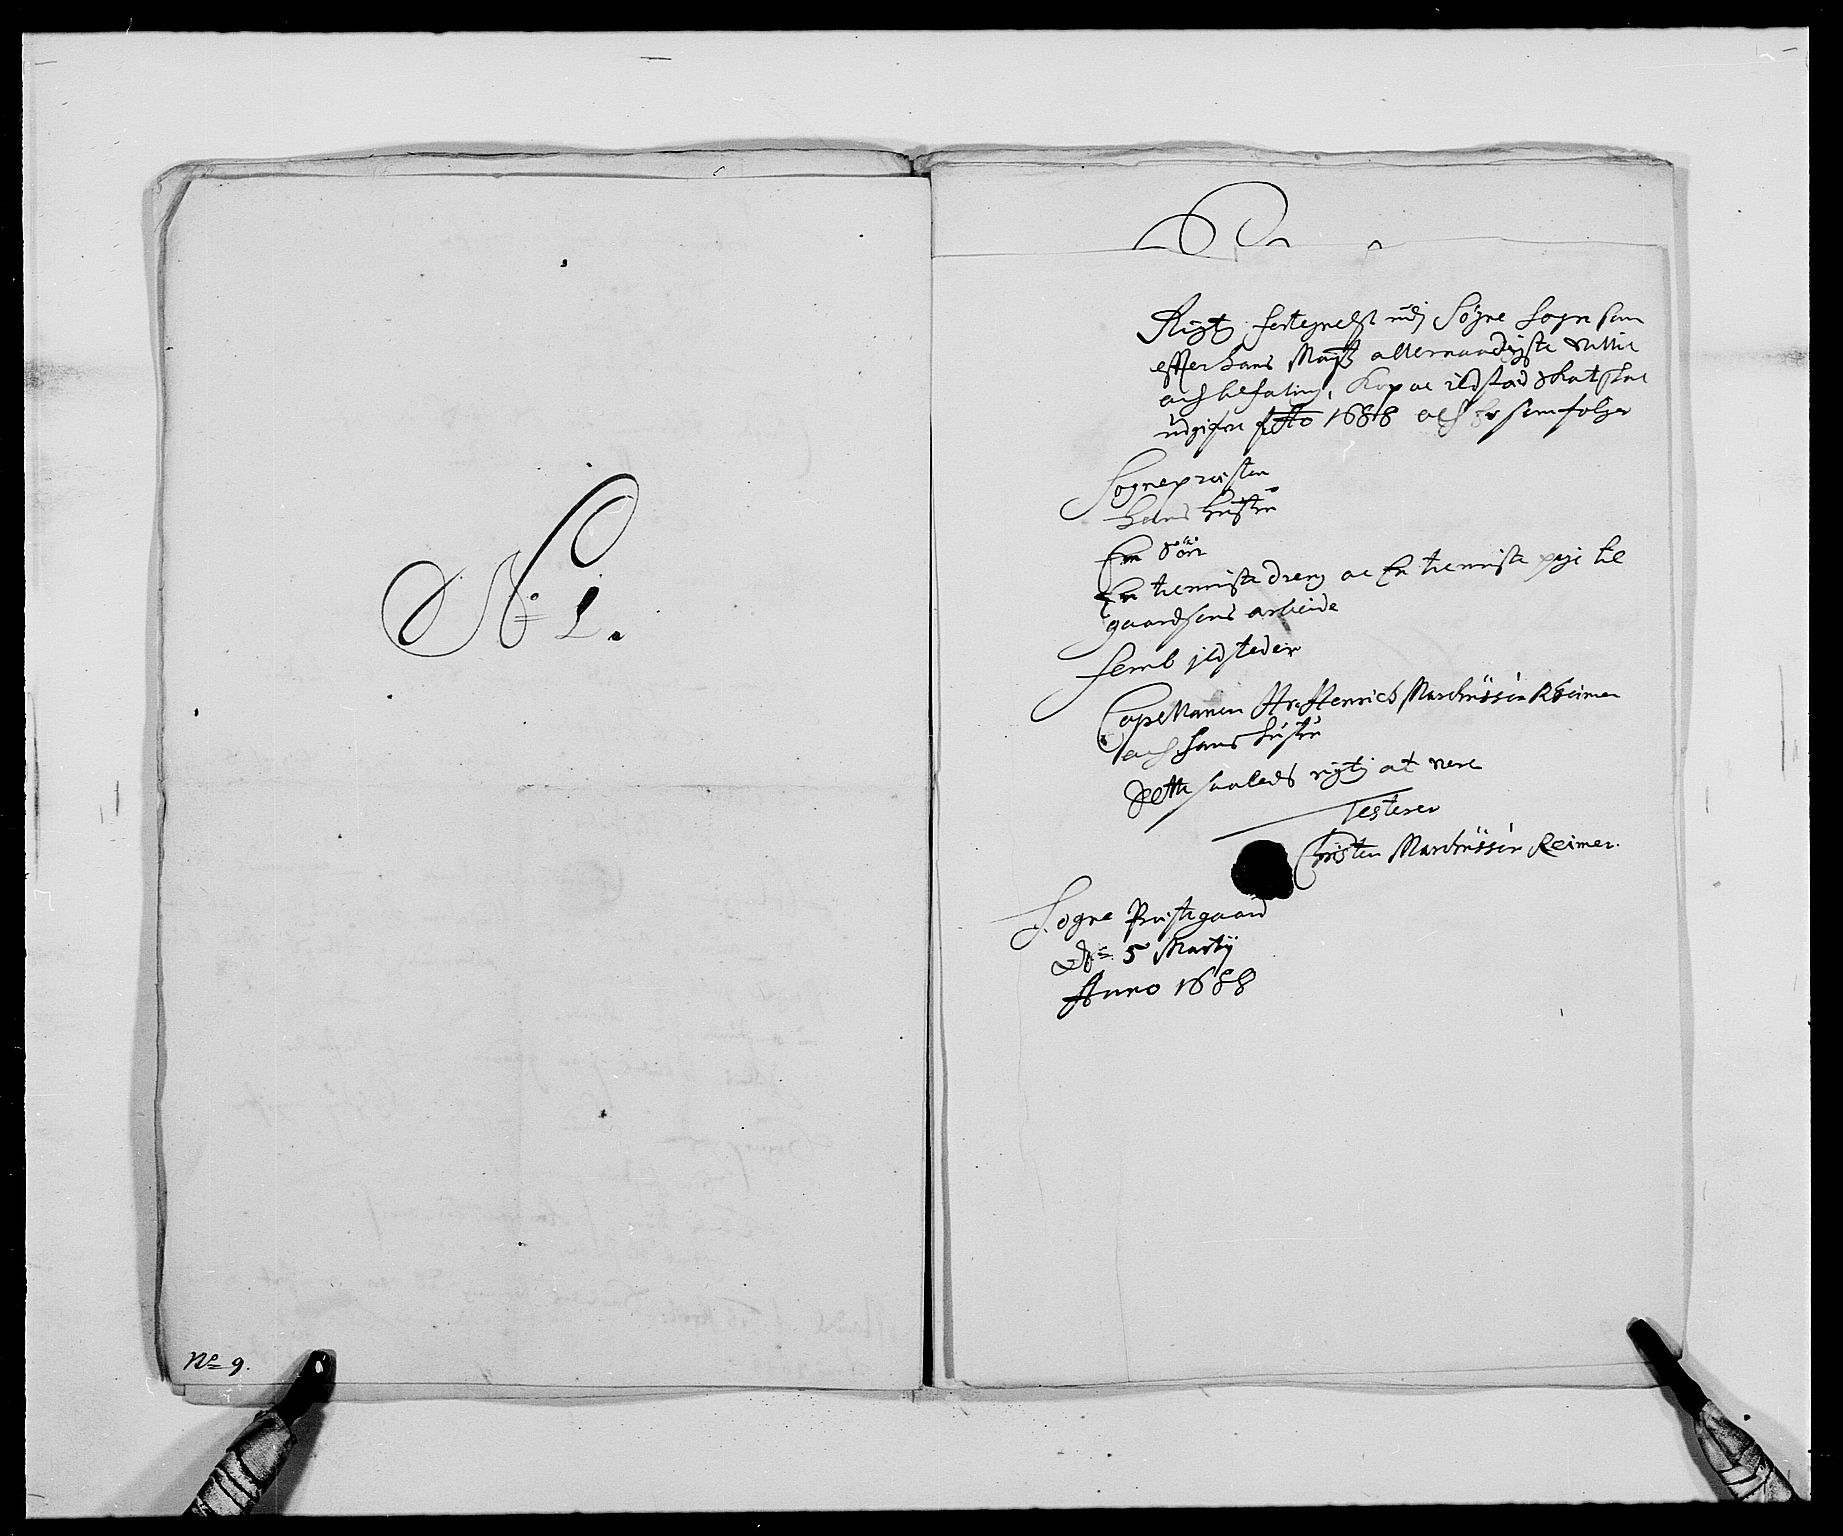 No 1.
No 9.
Rigtig fortegnelse udj Sögne Sogn som
effter Hans Mayts allernaadigste villie
och befaling, Kop oc ildsted skat skal
udgifve Ao 1688 och er som folger
Sognepresten
hans hustru
En Sön
En tienniste dreng oc En tienniste pige til
gaardsens arbeide
Femb jldsteder
Capellanen Hr Henrich Marchussön Reimer
och hans hustru
Dette saaleds rigtig at vere
Testerer
Christen Marchussön Reimer.
Sogne Prestegaard
Dn 5 Martij
Anno 1688